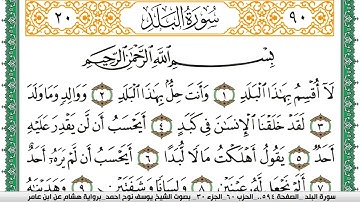 ٢٠ سُورَةُ البَلَدِ ٩٠
بِسْمِ اللَّهِ الرَّحْمَٰنِ الرَّحِيمِ
لَآ أُقْسِمُ بِهَٰذَا الْبَلَدِ ١ وَأَنتَ حِلٌّ بِهَٰذَا الْبَلَدِ ٢ وَوَالِدٍ وَمَا وَلَدَ
٣ لَقَدْ خَلَقْنَا الْإِنسَٰنَ فِي كَبَدٍ ٤ أَيَحْسِبُ أَن لَّن يَقْدِرَ عَلَيْهِ
أَحَدٌ ٥ يَقُولُ أَهْلَكْتُ مَالًا لُّبَدًا ٦ أَيَحْسِبُ أَن لَّمْ يَرَهُۥ أَحَدٌ
٧ أَلَمْ نَجْعَل لَّهُۥ عَيْنَيْنِ ٨ وَلِسَانًا وَشَفَتَيْنِ ٩ وَهَدَيْنَٰهُ
سورة البلد _الصفحة ٥٩٤ .. الحزب ٦٠ _الجزء ٣٠ .. بصوت الشيخ يوسف نوح احمد_برواية هشام عن ابن عامر